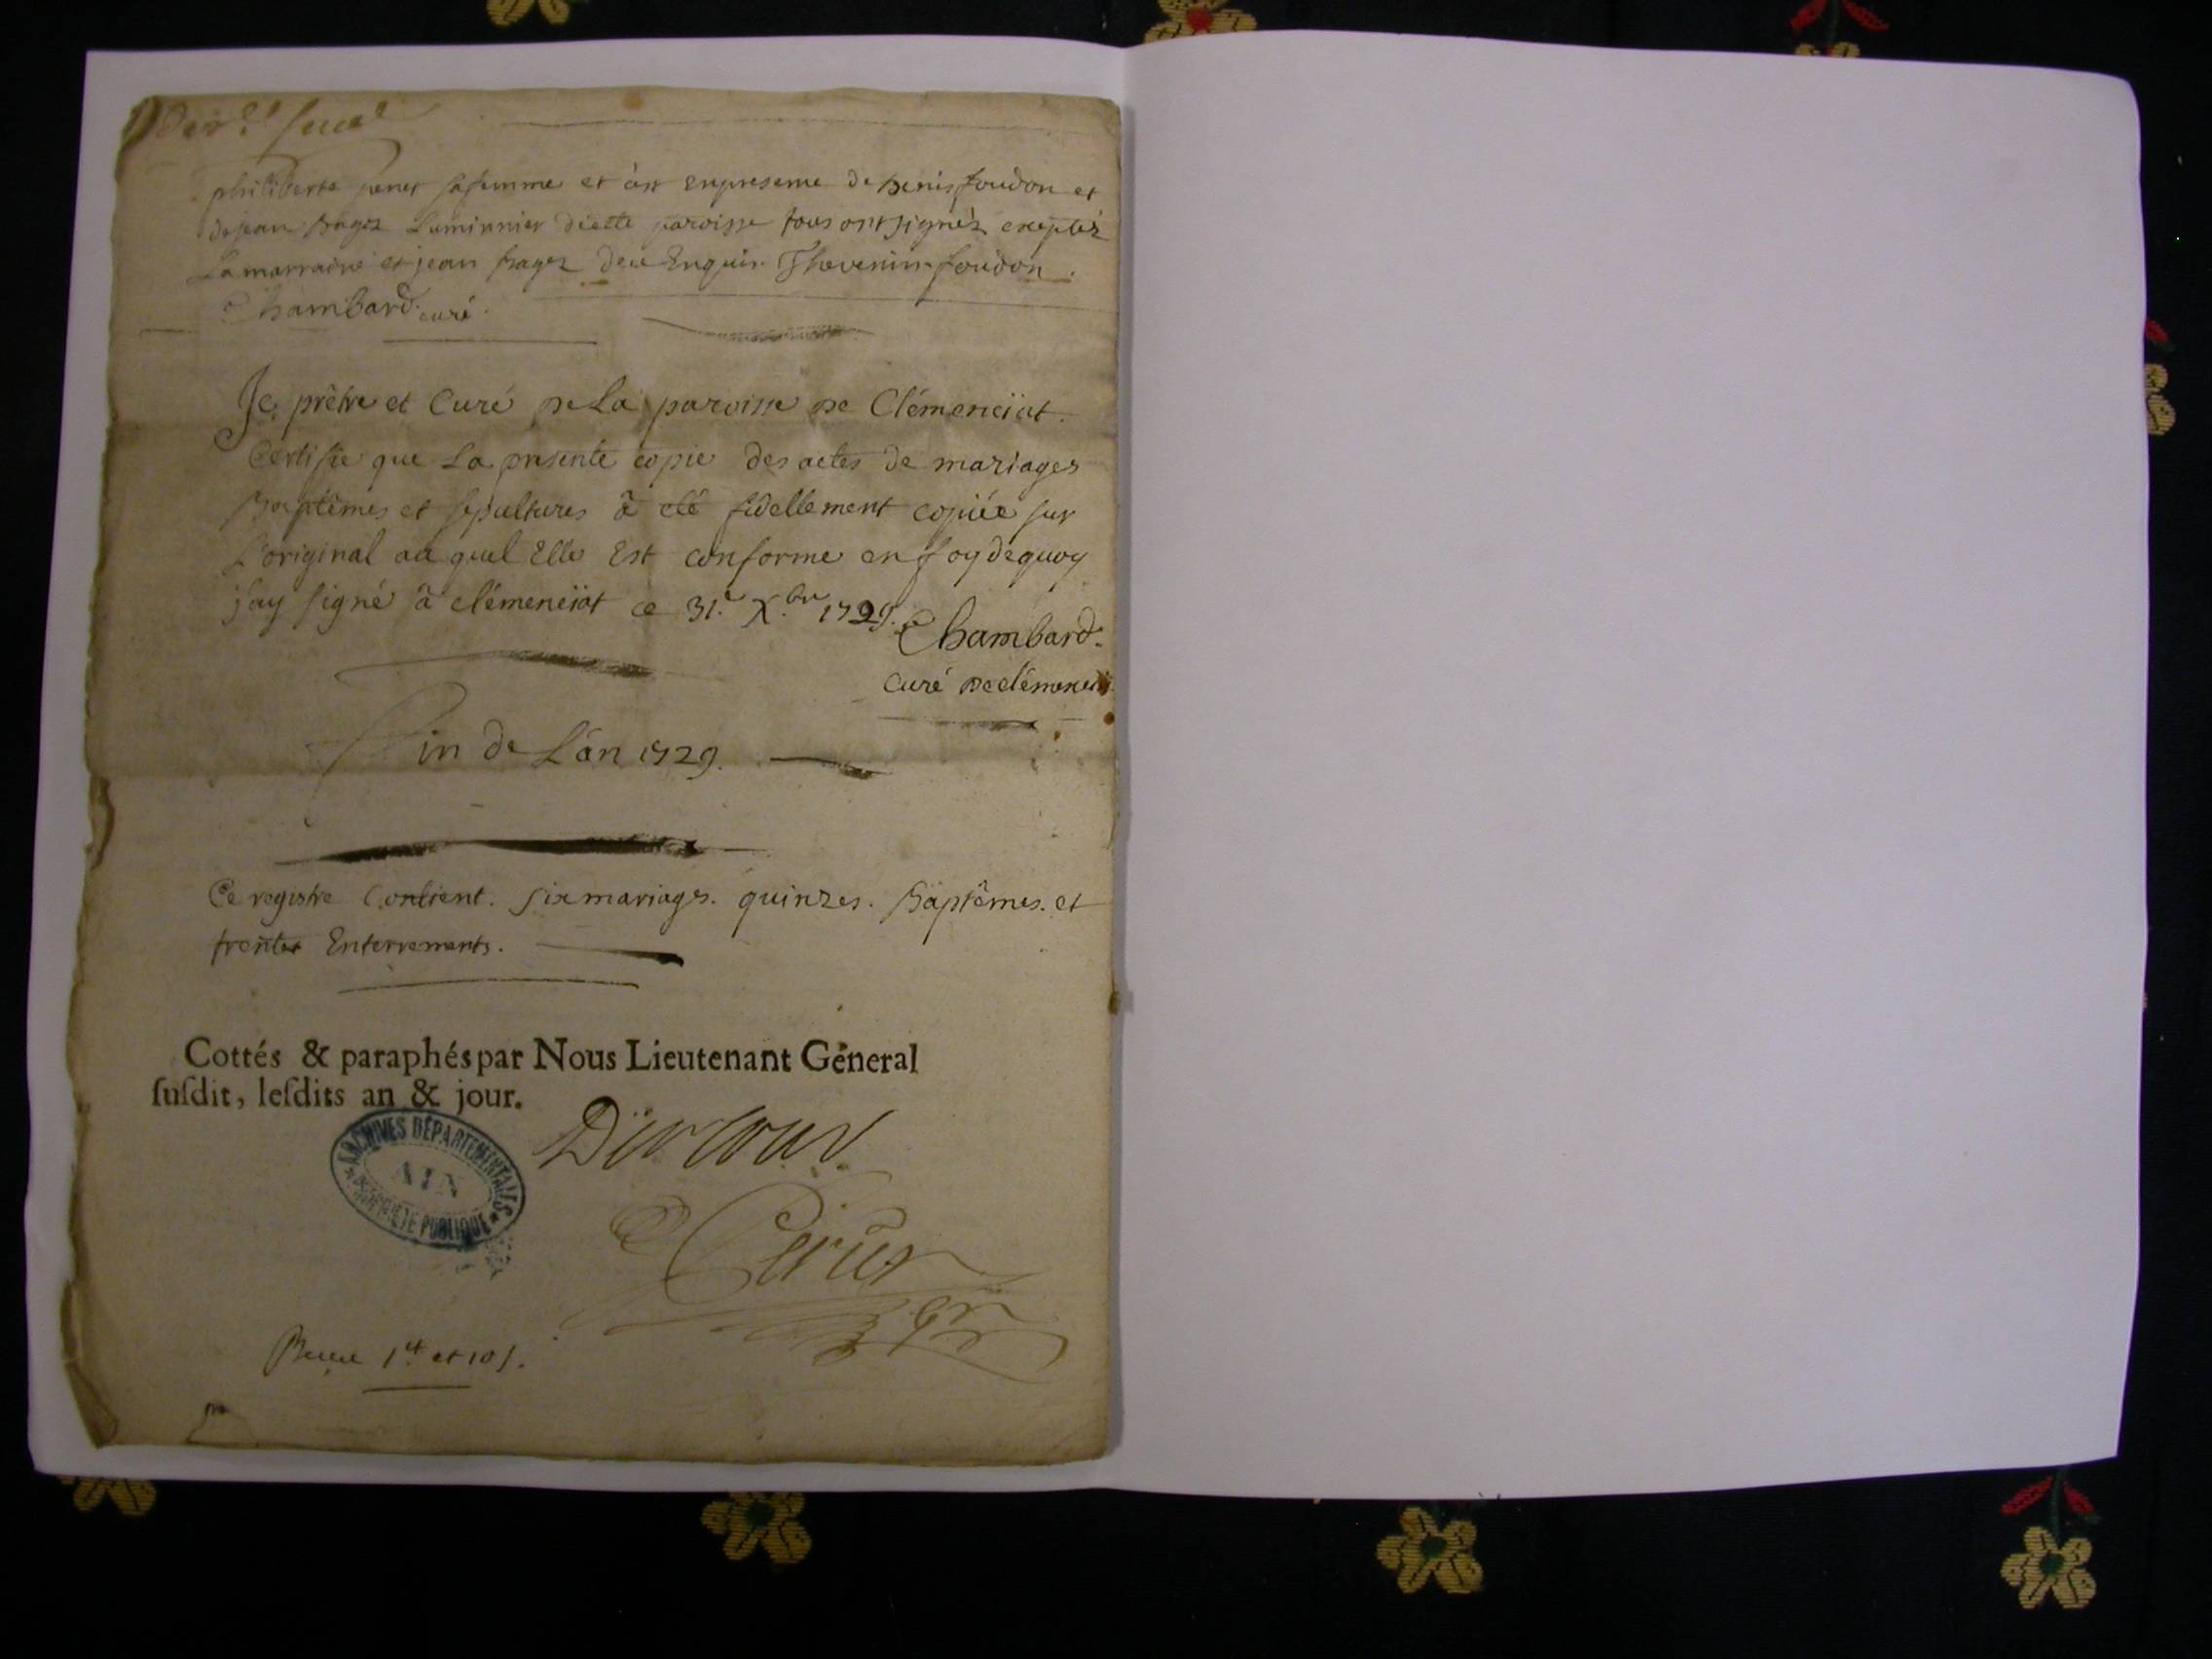 philiberte sa femme et à en presence de Denis foudon et
de jean Luminier dicette paroisse tous ont signéz exeptéz
La marraine et jean de ce Enquis. Thevenin. foudon.
Chambard. curé.
Je prêtre et Curé De La paroisse De Clémenciat.
Certifie que La presente copie des actes de mariages
Baptêmes et sepultures à eté fidellement copiée sur
L'original au quel Elle Est conforme en foy dequoy
j'ay signé à clémenciat ce 31.e X.bre 1729. Chambard.
curé De clémenci
Fin de L'an 1729.
Ce registre Contient. six mariages. quinzes. Baptêmes. et
trentes Enterrements.
Cottés & paraphés par Nous Lieutenant Géneral
ſuſdit, leſdits an & jour.
ARCHIVES DÉPARTEMENTALES
AIN
PROPRIÉTÉ PUBLIQUE
1# et 10 s.